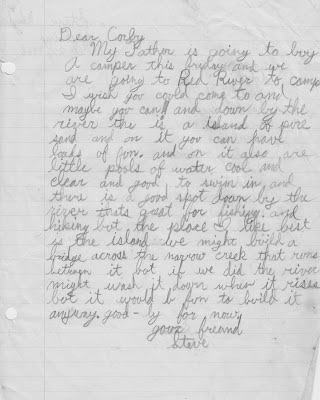 Dear Corby
My Father is going to buy
A camper this fryday and we
are going to Red River to camp
I wish you could come to and
maybe you can, and down by the
river the is a island of pure
sand and on it you can have
loads of fun. and on it also are
little pools of water cool and
clear and good to swim in, and
there is a good spot down by the
river thats great for fishing. and
hiking but the place I like best
is the island we might build a
bridge across the narrow creek that runs
betwen it but if we did the river
might wash it down when it rises
but it would b fun to build it
anyway. good-by for now
your freand
Steve